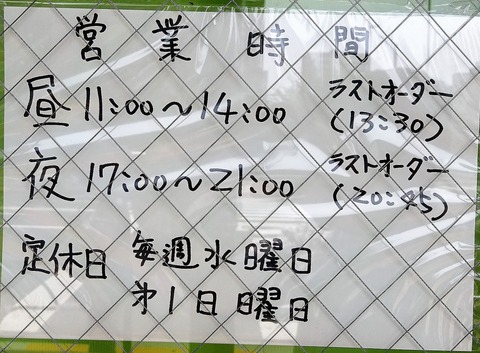 営業時間
昼 11:00〜14:00 ラストオーダー(13:30)
夜 17:00〜21:00 ラストオーダー(20:45)
定休日 毎週水曜日
㐧1日曜日